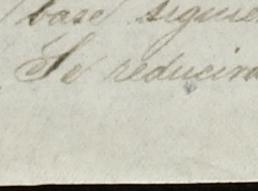 base siguie
Se reducira